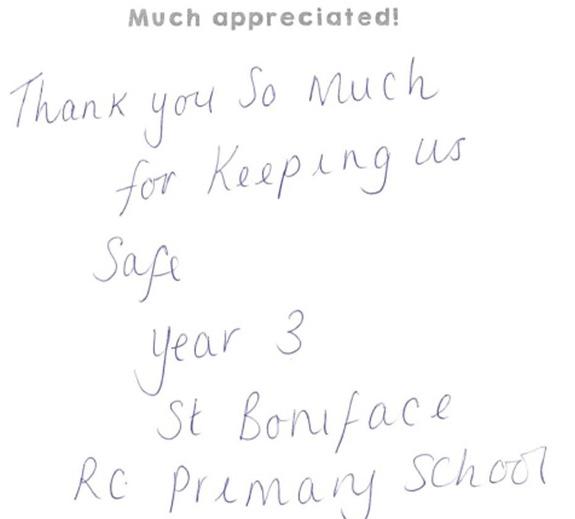 Much appreciated!
Thank you So Much
for Keeping us
Safe
Year 3
St Boniface
RC Primary School